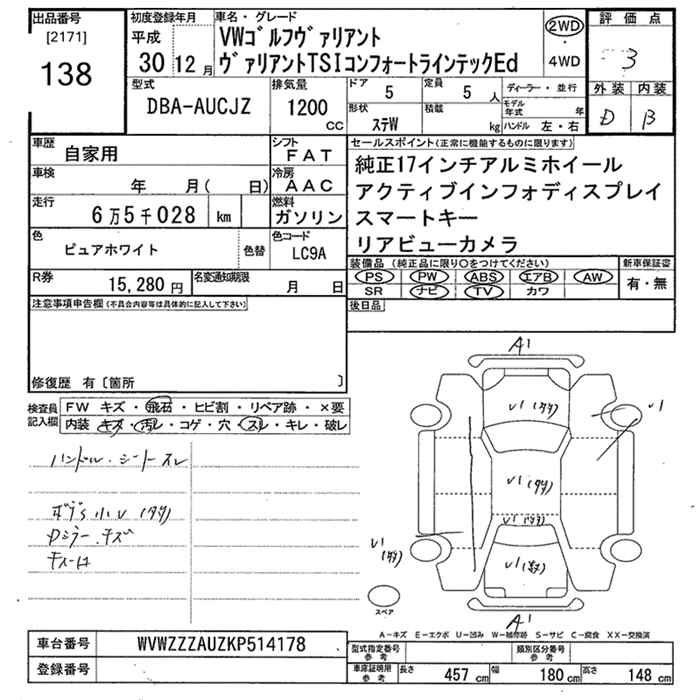 出品番号
[2171]
138
初度登録年月
平成
30 12月
車名・グレード
VWゴルフヴァリアント
ヴァリアントTSIコンフォートラインテックEd
2WD
4WD
評価点
3
外装 内装
D B
型式
DBA-AUCJZ
排気量
1200
CC
ドア
5
定員
5 人
形状
ステW
積載
kg
ディーラー・並行
モデル年式 年
ハンドル 左・右
車歴
自家用
シフト
FAT
車検
年 月( 日)
冷房
AAC
走行
6万5千028 km
燃料
ガソリン
色
ピュアホワイト
色替
色コード
LC9A
R券
15,280円
名変通知期限
月 日
セールスポイント(正常に機能するものに限ります)
純正17インチアルミホイール
アクティブインフォディスプレイ
スマートキー
リアビューカメラ
装備品(純正品に限り○をつけてください)
PS PW ABS エアB AW
SR ナビ TV カワ
新車保証書
有・無
後日品
注意事項申告欄(不具合内容等は具体的に記入して下さい)
修復歴 有〔箇所 〕
検査員記入欄
FW キズ・飛石・ヒビ割・リペア跡・×要
内装 キズ・汚レ・コゲ・穴・スレ・キレ・破レ
ハンドル・シートスレ
ボデS小U(タタ)
Dミラーキズ
A1
U1(タタ)
U1
U1(タタ)
U1(タタ)
U1(タタ)
U1(タタ)
A1
スペア
A-キズ E-エクボ U-凹み W-補修跡 S-サビ C-腐食 XX-交換済
車台番号
WVWZZZAUZKP514178
登録番号
型式指定番号
参考
類別区分番号
参考
車庫証明用
参考
長さ 457 cm 幅 180 cm 高さ 148 cm